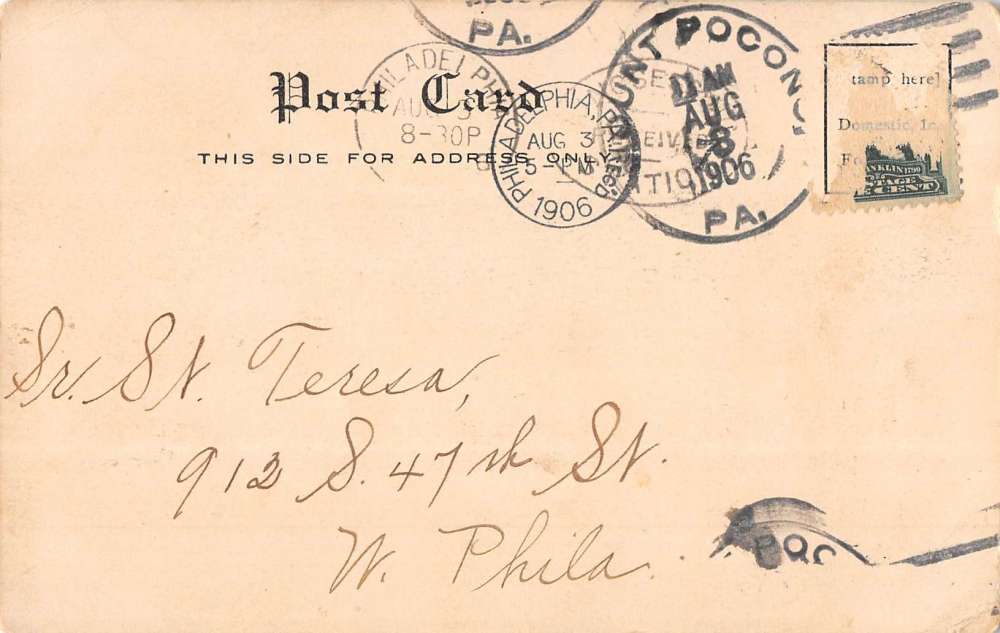 PA.
MOUNT POCONO
11 AM
AUG
3
1906
PA.
PHILADELPHIA
AUG 3
8-30P
PHILADELPHIA, PA. REC'D
AUG 3
5-PM
1906
RECEIVED
tamp here]
Domestic, 1c.
FRANKLIN 1790
CENT
Post Card
THIS SIDE FOR ADDRESS ONLY.
Sr. St. Teresa,
912 S. 47th St.
W. Phila.
POC